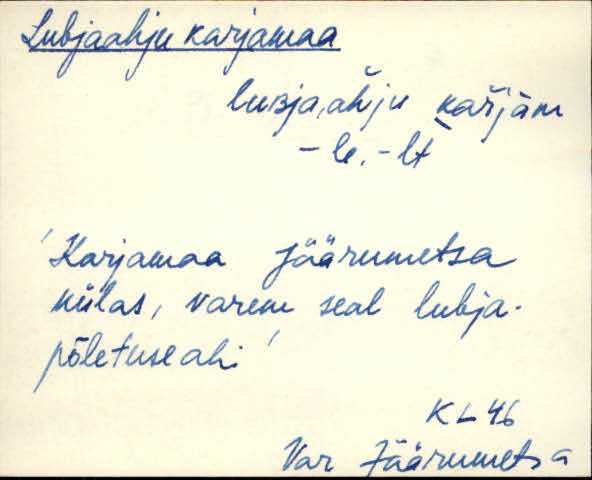 Lubjaahju karjamaa
luʙja,ah́ju kaŕjäm
-le, -lt
'Karjamaa Jäärumetsa
külas, varem seal lubja-
põletuseahi'
KL46
Var Jäärumetsa